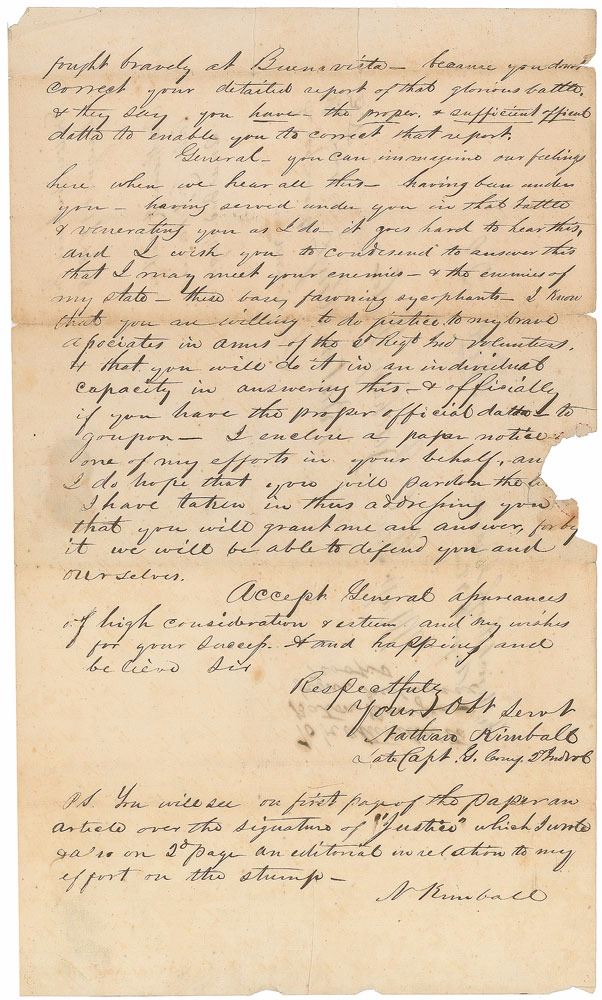 fought bravely at Buenavista — because you dont
correct your detailed report of that glorious battle,
& they say you have — the proper, & sufficient official
datta to enable you to correct that report.
General — you can immagine our feelings
here when we hear all this — having been under
you — having served under you in that battle
& venerating you as I do it goes hard to hear this,
and I wish you to condesend to answer this
that I may meet your enemies — & the enemies of
my state — these base fawning sycophants — I know
that you are willing to do justice to my brave
asociates in arms of the 2d Regt Ind Volunteers,
& that you will do it in an individual
capacity in answering this — & officially
if you have the proper official datta to
goupon — I enclose a paper notice
one of my efforts in your behalf, an
I do hope that you will pardon the
I have taken in thus addressing you
that you will grant me an answer, for by
it we will be able to defend you and
ourselves.
Accept General asureances
of high consideration & esteem and my wishes
for your success. & and happiness and
believe Sir
Respectfuly
Your Obt Servt
Nathan Kimball
Late Capt. G. Comp 2d Ind vol
P.S. You will see on first page of the paper an
article over the signature of "Justice" which I wrote
& also on 2d page an editorial in relation to my
effort on the stump —
N Kimball